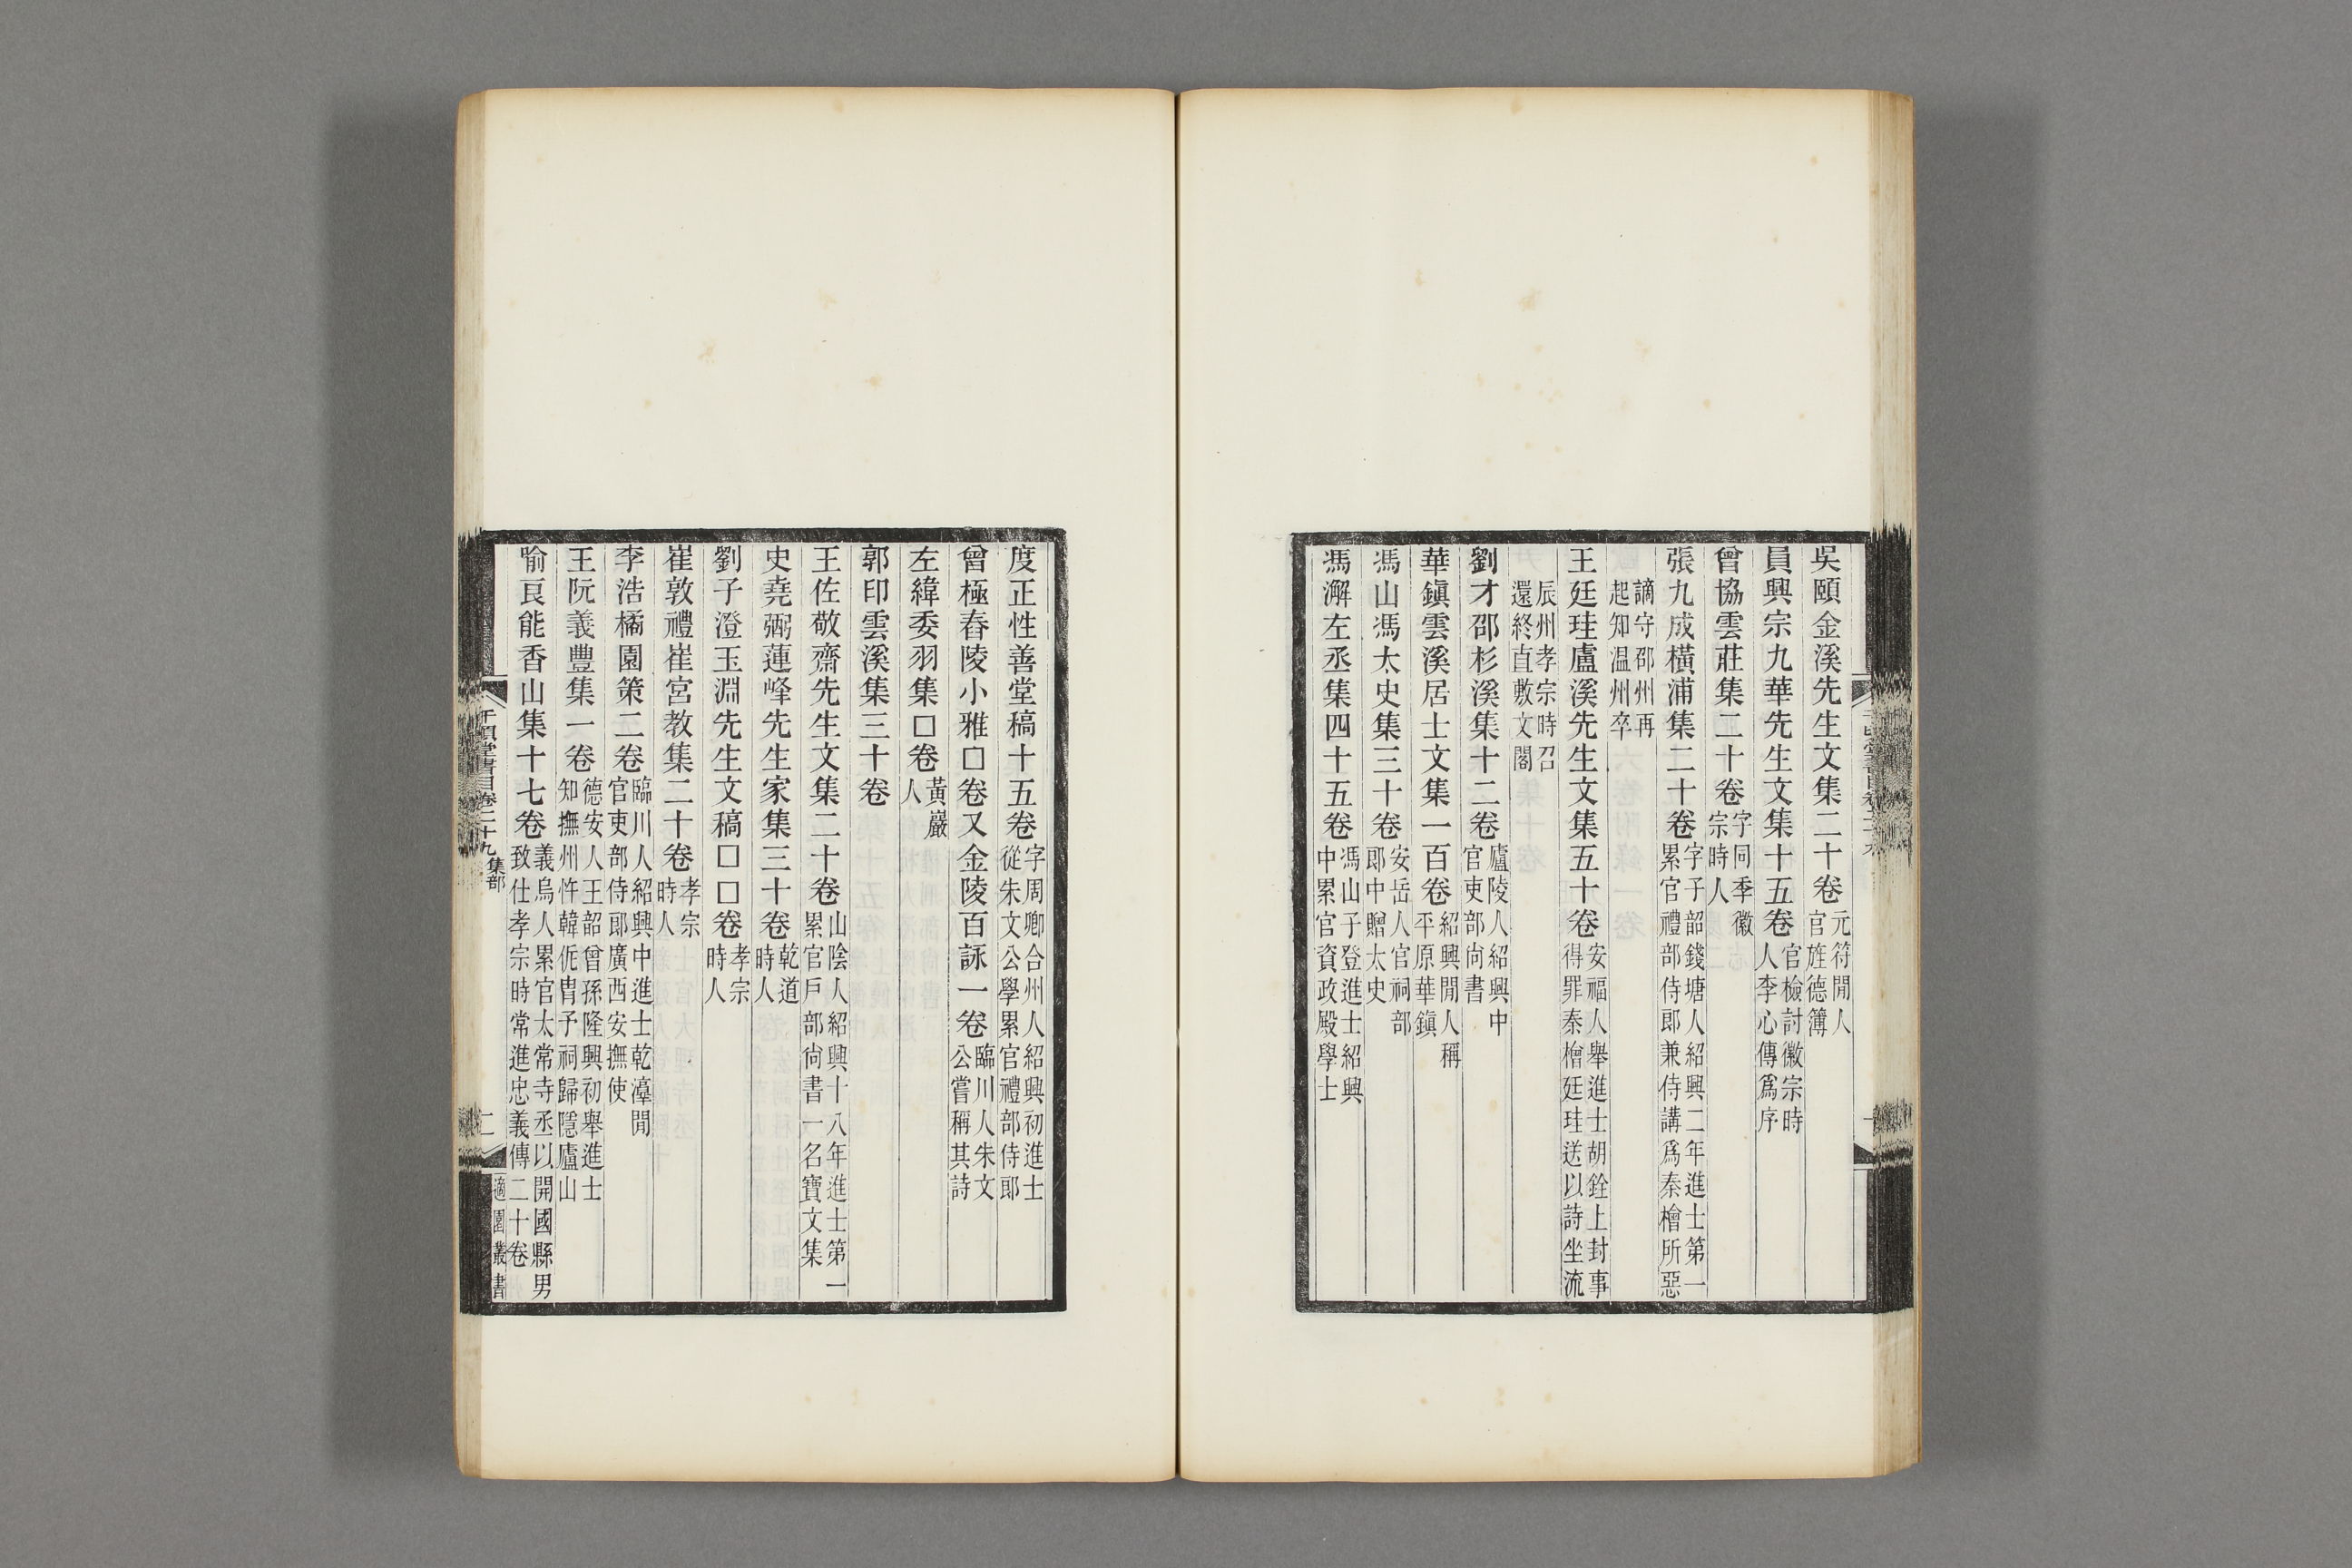 吳頤金溪先生文集二十卷元符閒人官旌德簿
員興宗九華先生文集十五卷官檢討徽宗時人李心傳爲序
曾協雲莊集二十卷字同季徽宗時人
張九成橫浦集二十卷字子韶錢塘人紹興二年進士第一累官禮部侍郎兼侍講爲秦檜所惡
謫守邵州再起知温州卒
王廷珪盧溪先生文集五十卷安福人舉進士胡銓上封事得罪秦檜廷珪送以詩坐流
辰州孝宗時召還終直敷文閣
劉才邵杉溪集十二卷廬陵人紹興中官吏部尙書
華鎭雲溪居士文集一百卷紹興閒人稱平原華鎭
馮山馮太史集三十卷安岳人官祠部郎中贈太史
馮澥左丞集四十五卷馮山子登進士紹興中累官資政殿學士
度正性善堂稿十五卷字周卿合州人紹興初進士從朱文公學累官禮部侍郎
曾極舂陵小雅□卷又金陵百詠一卷臨川人朱文公嘗稱其詩
左緯委羽集□卷黃巖人
郭印雲溪集三十卷
王佐敬齋先生文集二十卷山陰人紹興十八年進士第一累官戶部尙書一名寶文集
史堯弼蓮峰先生家集三十卷乾道時人
劉子澄玉淵先生文稿□□卷孝宗時人
崔敦禮崔宮教集二十卷孝宗時人
李浩橘園策二卷臨川人紹興中進士乾漳閒官吏部侍郎廣西安撫使
王阮義豐集一卷德安人王韶曾孫隆興初舉進士知撫州忤韓侂胄予祠歸隱廬山
喻良能香山集十七卷義烏人累官太常寺丞以開國縣男致仕孝宗時常進忠義傳二十卷
千頃堂書目卷二十九 集部
二
適園叢書